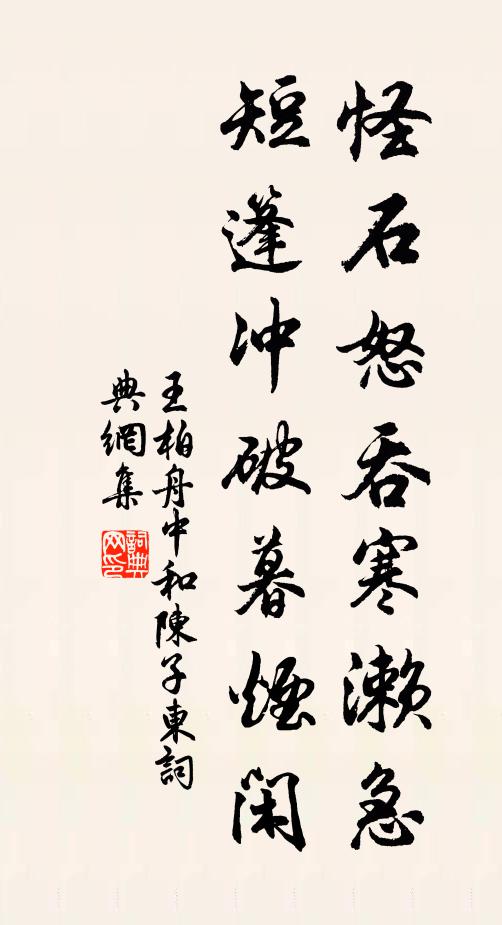 怪石怒吞寒瀨急
短篷冲破暮煙閑
王柏舟中和陳子東詞
典網集
詞典
网印